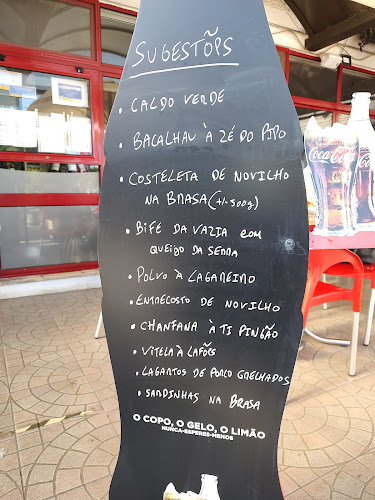 SUGESTÕPS
• CALDO VERDE
• BACALHAU À ZÉ DO PIPO
• COSTELETA DE NOVILHO
NA BRASA (+/- 500g)
• BIFE DA VAZIA COM
QUEIJO DA SERRA
• POLVO À LAGAREIRO
• ENTRECOSTO DE NOVILHO
• CHANFANA À TI PINGÃO
• VITELA À LAFÕES
• LAGARTOS DE PORCO GRELHADOS
• SARDINHAS NA BRASA
O COPO, O GELO, O LIMÃO
NUNCA-ESPERES-MENOS
Coca-Cola